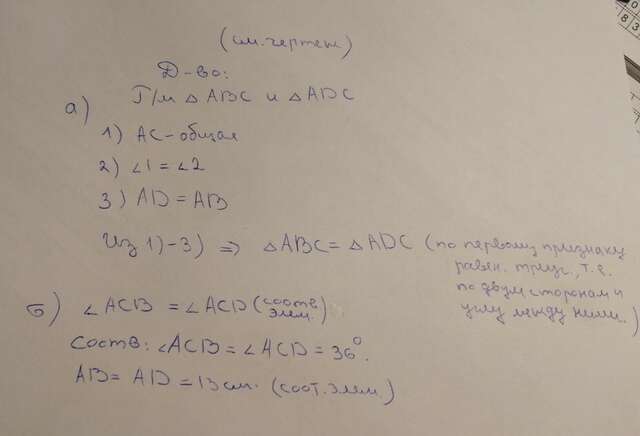 (см. чертеж)
Д-во:
а)
Р/м △ABC и △ADC
1) AC - общая
2) ∠1 = ∠2
3) AD = AB
Из 1)-3) ⇒ △ABC = △ADC (по первому признаку
равен. треуг., т.е.
по двум сторонам и
углу между ними.)
б) ∠ACB = ∠ACD (соотв.
элем.)
Соотв: ∠ACB = ∠ACD = 36°.
AB = AD = 13 см. (соот. элем.)
8 3